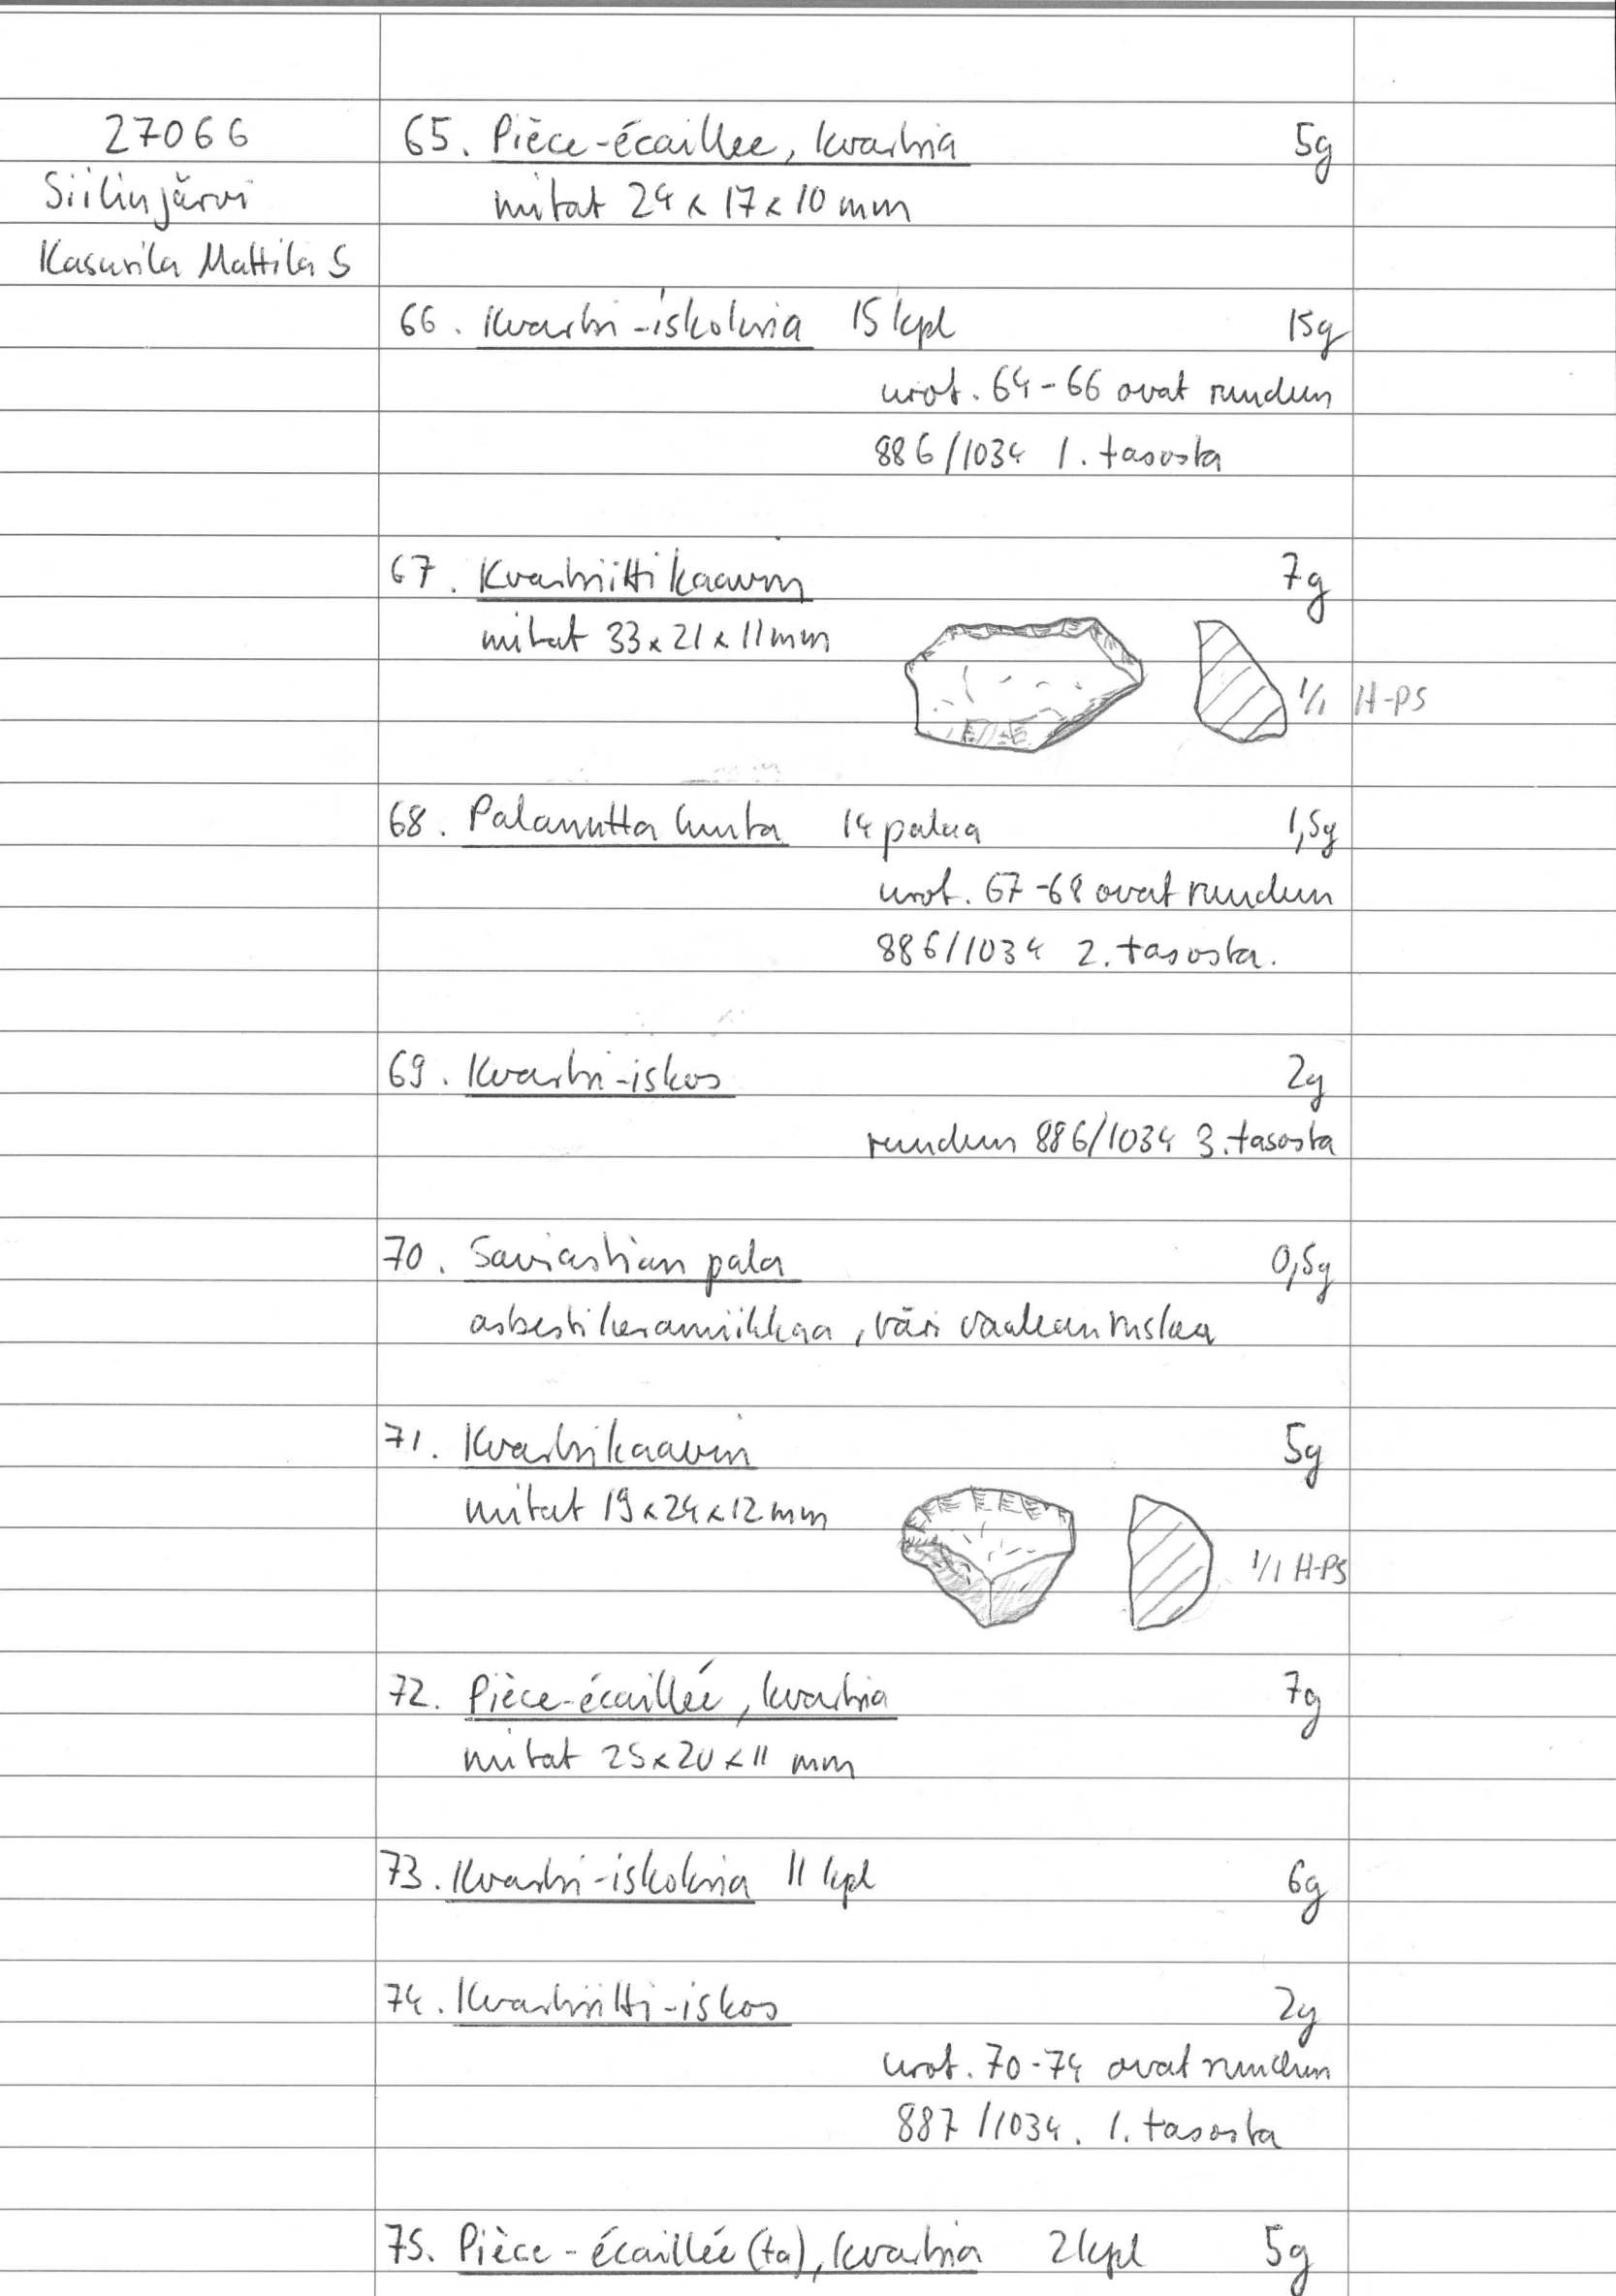 27066
Siilinjärvi
Kasurila Mattila S
65. Pièce-écaillee, kvartsia 5g
mitat 24 x 17 x 10 mm
66. Kvartsi-iskoksia 15 kpl 15g
nrot. 64-66 ovat ruudun
886/1034 1. tasosta
67. Kvartsiittikaavin 7g
mitat 33 x 21 x 11 mm
1/1 H-PS
68. Palanutta luuta 14 palaa 1,5g
nrot. 67-68 ovat ruudun
886/1034 2. tasosta.
69. Kvartsi-iskos 2g
ruudun 886/1034 3. tasosta
70. Saviastian pala 0,5g
asbestikeramiikkaa, väri vaaleanruskea
71. Kvartsikaavin 5g
mitat 19 x 24 x 12 mm
1/1 H-PS
72. Pièce-écaillée, kvartsia 7g
mitat 25 x 20 x 11 mm
73. Kvartsi-iskoksia 11 kpl 6g
74. Kvartsiitti-iskos 2g
nrot. 70-74 ovat ruudun
887/1034. 1. tasosta
75. Pièce-écaillée(ta), kvartsia 2 kpl 5g